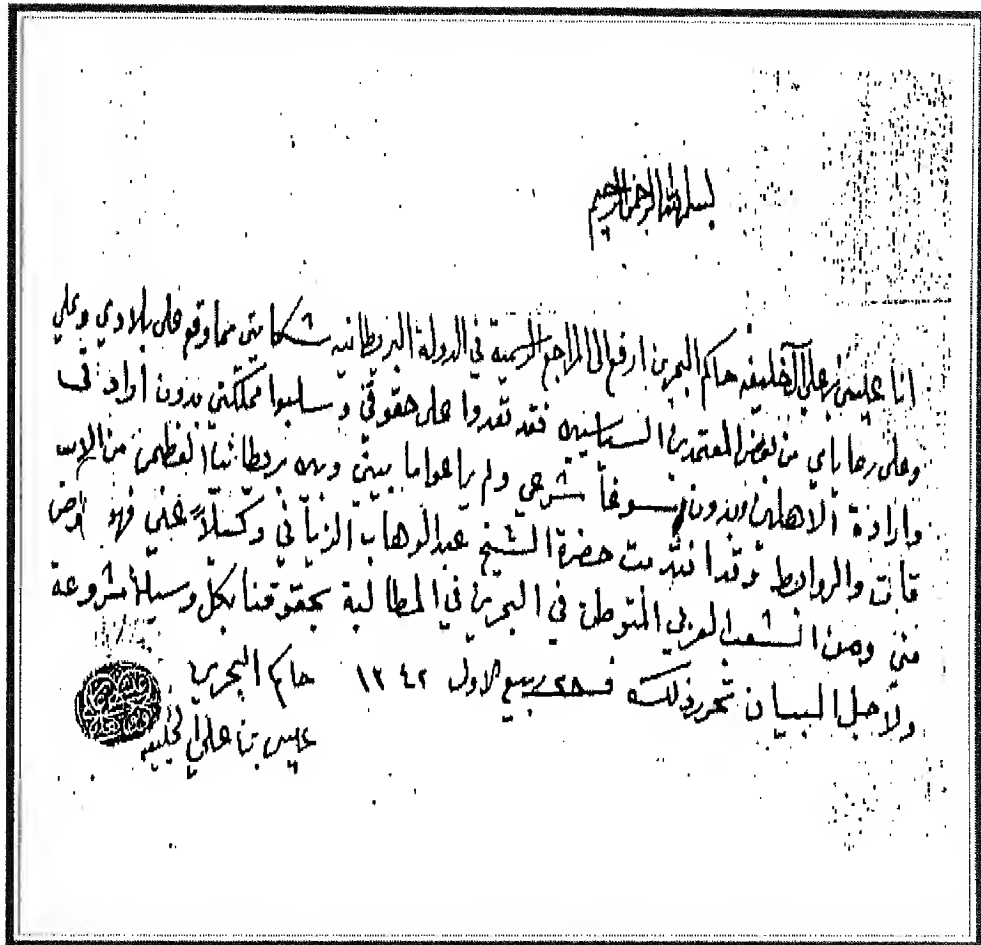 بسم الله الرحمن الرحيم
انا عيسى بن علي آل خليفه حاكم البحرين ارفع الى المراجع الرسمية في الدولة البريطانيه شكايتي مما وقع على بلادي وعلي
وعلى رعاياي من بعض المعتمدين السياسيين فقد تعدوا على حقوقي وسلبوا مملكتي بدون ارادتي
وارادة الاهلين وبدون مسوغاً شرعي ولم يراعوا ما بيني وبين بريطانيا العظمى من الاتفا
قات والروابط وقد انتدبت حضرة الشيخ عبدالوهاب الزياني وكيلاً عني فهو مفوض
مني ومن الشعب العربي المتوطن في البحرين في المطالبة بحقوقنا بكل وسيلة مشروعة
ولاجل البيان تحرر ذلك في ربيع الاول ١٣٤٢ حاكم البحرين
عيسى بن علي الخليفه